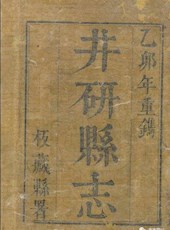 乙卯年重鐫
井研縣志
板藏縣署